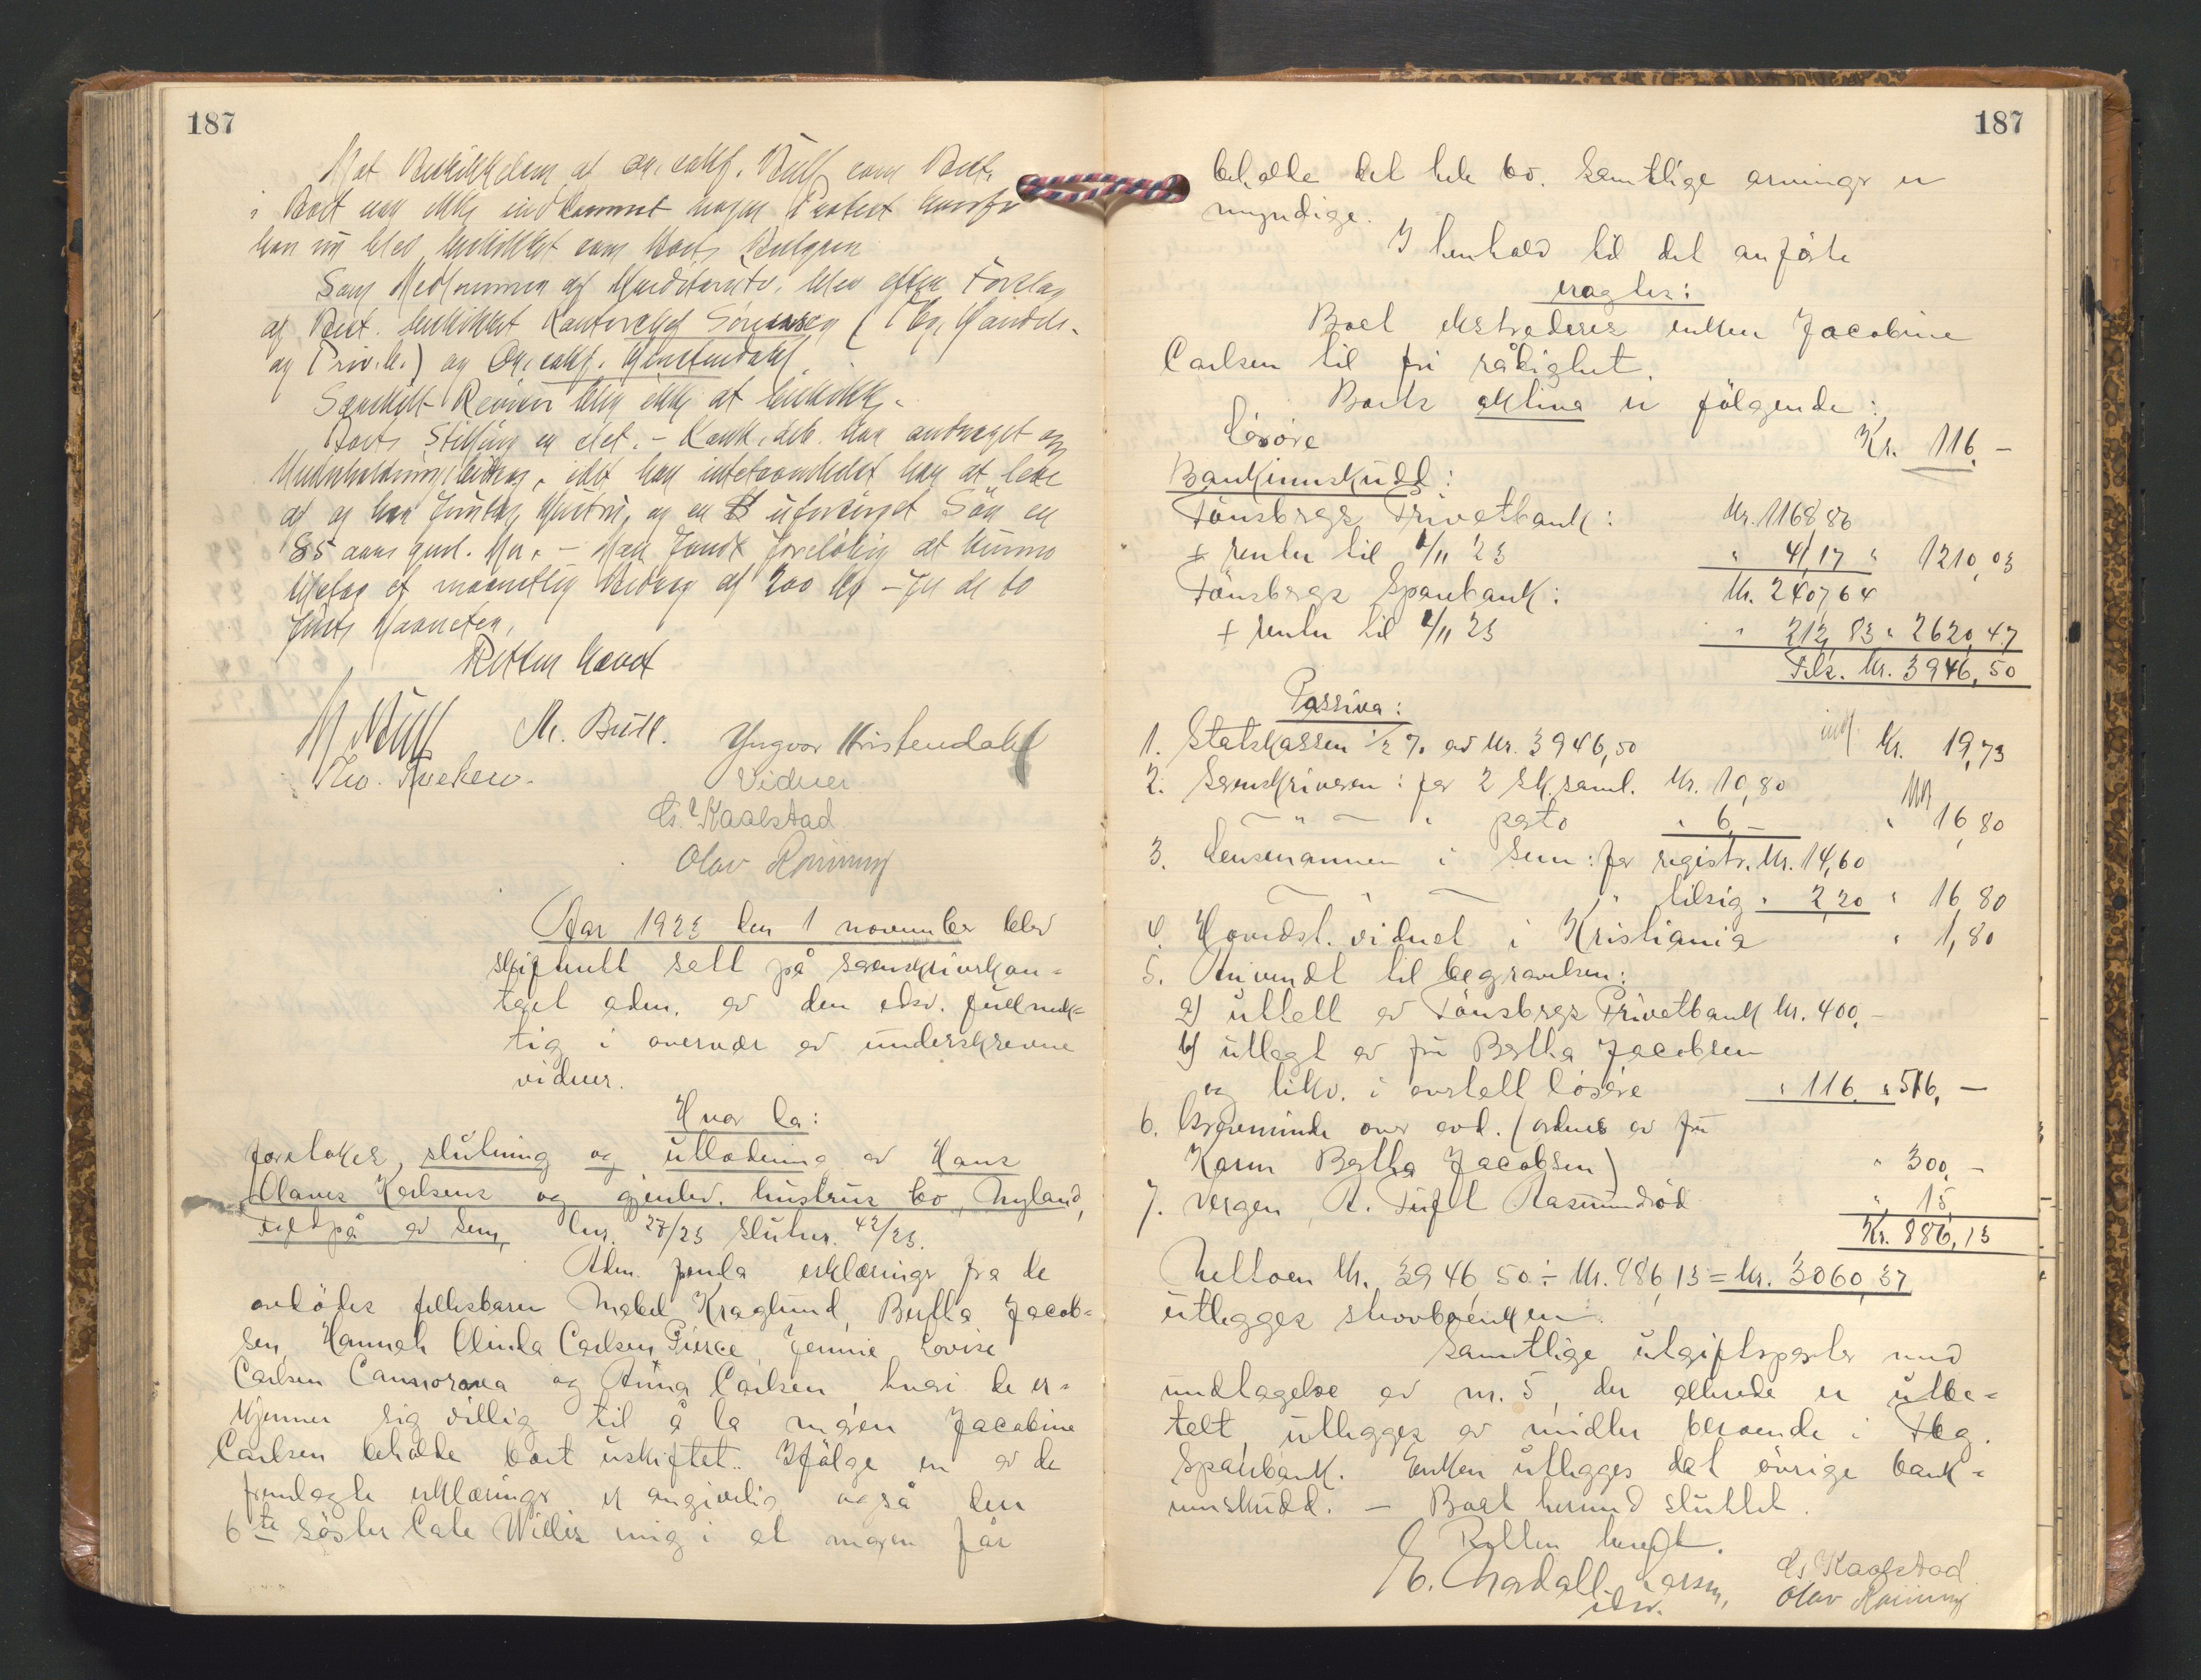 187
Mot Beskikkelsen af O.r.sakf. Bull som Best.
i Boet var ikke indkommet nogen Protest hvorfor
han nu blev beskikket som Boets Bestyrer
Som Medlemmer af Kreditorutv. blev efter Forslag
af Best. beskikket Kontorchef Sörensen (Tbg. Handels-
og Priv.b.) og O.r.sakf. Kristendahl
Særskilt Revisor blev ikke at beskikke.
Boets Stilling er slet. - Konk.deb. har andraget om
Underholdningsbidrag, idet han intetsomhelst har at leve
af og har Hustru, og en Sön
85 aars gml. Mor. - Man fandt foreløbig at kunne
et maanedlig Bidrag af 200 Kr - for de to
første Maaneder.
Retten hævet
M Bull M. Bull. Yngvar Kristendahl
Vidner
Chr. Kaalstad
Olav Rönning
Aar 1923 den 1 november blev
skifterett satt på sorenskriverkon-
toret adm. av den edsv. fullmek-
tig i overvær av underskrevne
vidner.
Hvor da:
foretokes slutning og utlodning av Hans
Olaves Karlsens og gjenlev. hustrus bo, Nyland,
av Sem, lnr. 27/23 slutnr. 42/23.
Adm. fremla erklæringer fra de
avdödes fellesbarn Mabel Kraglund, Bertha Jacob-
sen, Hannah Olinda Carlsen Pierce, Jennie Lovise
Carlsen og Anna Carlsen hvori de er-
kjenner sig villig til å la moren Jacobine
Carlsen beholde boet uskiftet. Ifölge en av de
fremlagte erklæringer er angivelig også den
6te söster enig i at moren får
187
beholde det hele bo. Samtlige arvinger er
myndige.
I henhold til det anförte
vragtes:
Boet ekstraderes enken Jacobine
Carlsen til fri rådighet.
Boets aktiva er fölgende:
Lösöre Kr. 116,-
Bankinnskudd:
Tönsbergs Privatbank: Kr. 1168 86
+ renter til 1/11 23 " 41,17 " 1210,03
Tönsbergs Sparebank: Kr. 2407 64
+ renter til 1/11 23 " 212,83 " 2620,47
Tils. Kr. 3946,50
Passiva:
1. Statskassen 1/2 % av Kr. 3946,50 Kr. 19,73
2. Sorenskriveren: for 2 sk.saml. Kr. 10,80
- " - " porto " 6,- " 16,80
3. Lensmannen i Sem: for registr. Kr. 14,60
- " - " tilsig. " 2,20 " 16 80
4. Hovedst. vidnet i Kristiania " 1,80
5. Anvendt til begravelsen:
a) uttatt av Tönsbergs Privatbank Kr. 400,-
b) utlagt av fru Bertha Jacobsen
og likv. i avstått lösöre " 116 " 516,-
6. Gravminde over avd. (ordnes av fru
Karen Bertha Jacobsen) " 300,-
7. Vergen, A. Tufte Rasmundrød " 15,
Kr. 886,13
Nettoen Kr. 3946,50 ÷ Kr. 886,13 = Kr. 3060,37
utlegges skovbrenken.
Samtlige utgiftsposter med
undtagelse av nr. 5, der allerede er utbe-
talt utlegges av midler beroende i Tbg.
Sparebank. Enken utlegges det övrige bank-
innskudd. - Boet hermed sluttet.
Retten hevet.
Chr. Kaalstad
Olav Rönning
edsv.